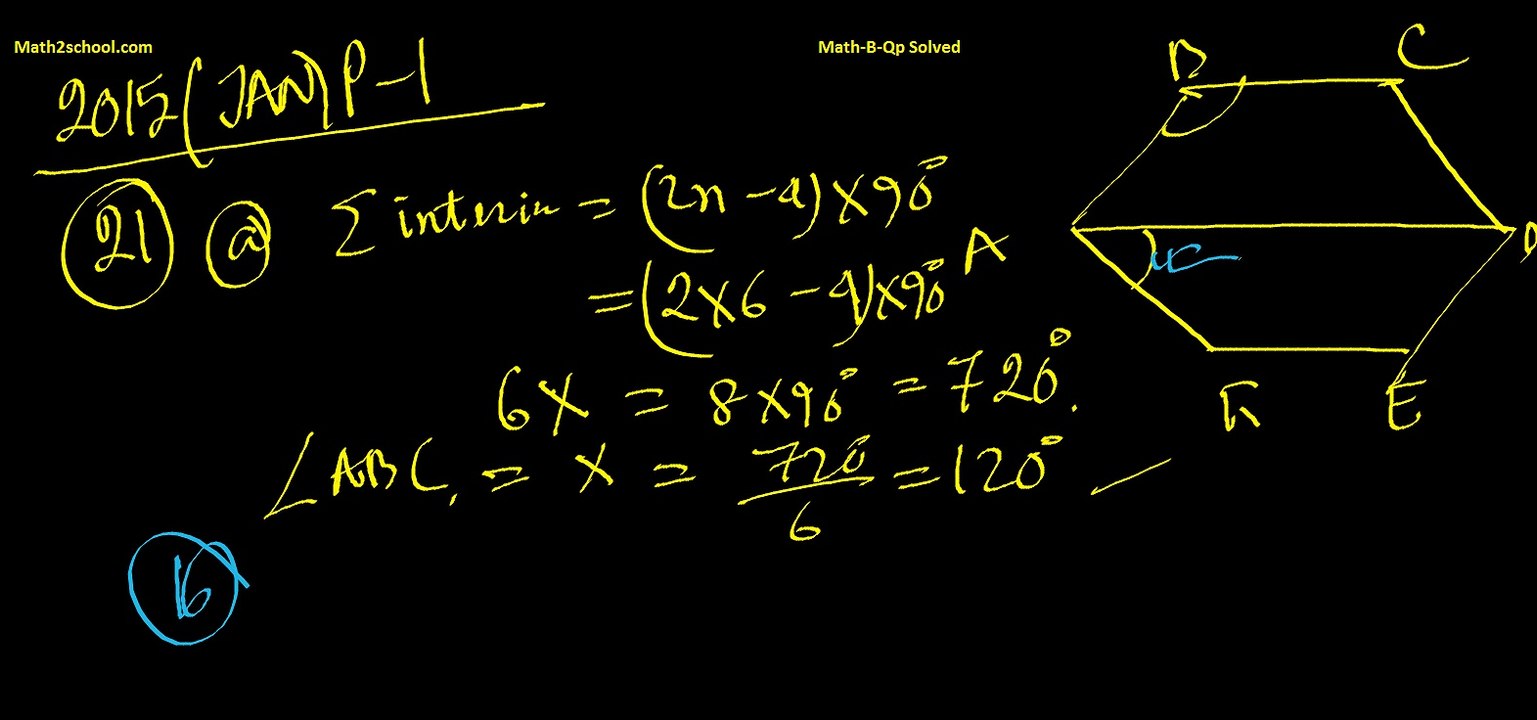 Math2school.com
Math-B-Qp Solved
2015 (JAN) P-1
21 a Σ interior = (2n - 4) × 90°
= (2×6 - 4) × 90°
6x = 8×90° = 720°.
∠ABC, = x = 720°/6 = 120°
b
B C
A D
F E